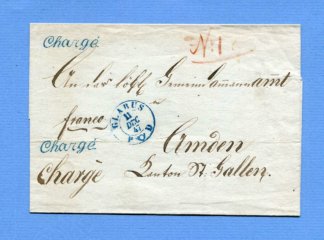 Chargé
No 1
An das löbl. Gemeindammannamt
franco
GLARUS
11
DEC
Amden
Chargé
Chargé
Kanton St. Gallen.